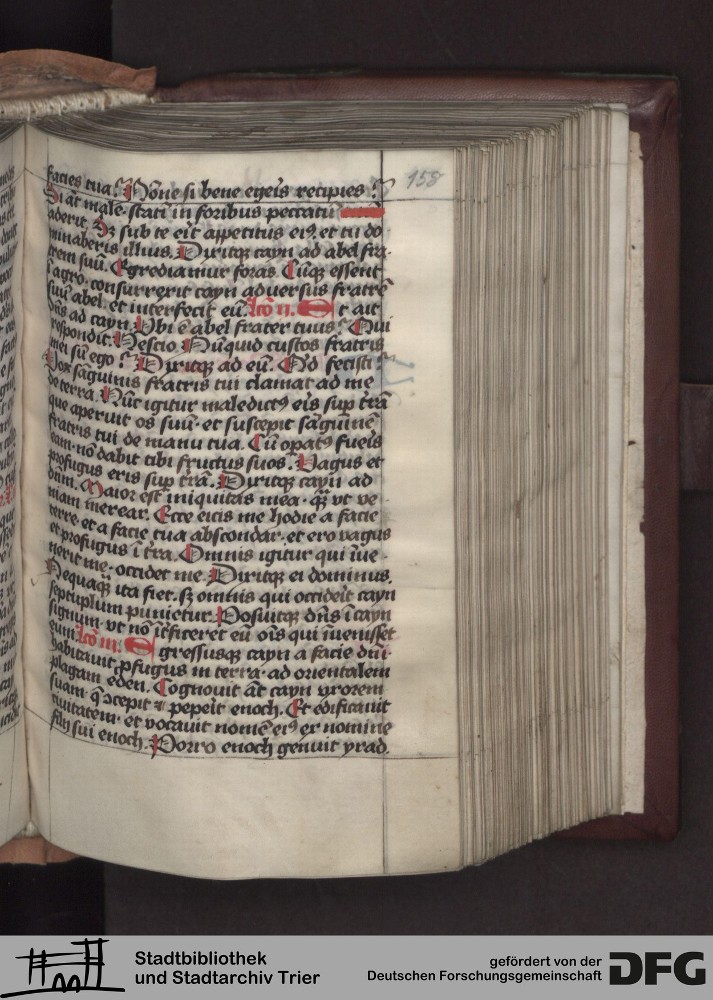 158
facies tua? Nōne si bene egeis recipies?
Si āt male · stati in foribus peccatū
aderit. Sꝫ sub te eīt appetitus eiꝰ. et tu do
minaberis illius. Dixitqꝫ cayn ad abel fra-
trem suū. Egrediamur foras. Cūqꝫ essent
ī agro · consurrerit cayn aduersus fratrē
suū abel · et interfecit eū. lcō ii. Et ait
dn̄s ad cayn. Vbi ē abel frater tuus? Qui
respondit. Nescio. Nūquid custos fratris
mei sū ego? Dixitqꝫ ad eū. Qd fecisti?
Vox sāguinis fratris tui clamat ad me
de terra. Nūc igitur maledictꝰ eis sup trā
que aperuit os suū · et suscepit sāguinē
fratris tui de manu tua. Cū opatꝰ fueis
eam · nō dabit tibi fructus suos. Vagus et
profugus eris sup trā. Dixitqꝫ cayn ad
dnm. Maior est iniquitas mea · qꝫ vt ve
niam merear. Ecce eicis me hodie a facie
terre · et a facie tua abscondar · et ero vagus
et profugus ī tra. Omnis igitur qui īue-
nerit me · occidet me. Dixitqꝫ ei dominus.
Nequaqꝫ ita fiet. sꝫ omnis qui occideīt cayn
septuplum punietur. Posuitqꝫ dn̄s ī cayn
signum vt nō īt̄ficeret eū oīs qui īuenisset
eum. lcō iii. Egressusqꝫ cayn a facie dnī ·
habitauit ꝓfugus in terra · ad orientalem
plagam eden. Cognouit āt cayn vxorem
suam · q̄ ꝯcepit ⁊ pepeīt enoch. Et edificauit
ciuitatem · et vocauit nomē eiꝰ ex nomine
filij sui enoch. Porro enoch genuit yrad.
Stadtbibliothek
und Stadtarchiv Trier
gefördert von der
Deutschen Forschungsgemeinschaft
DFG